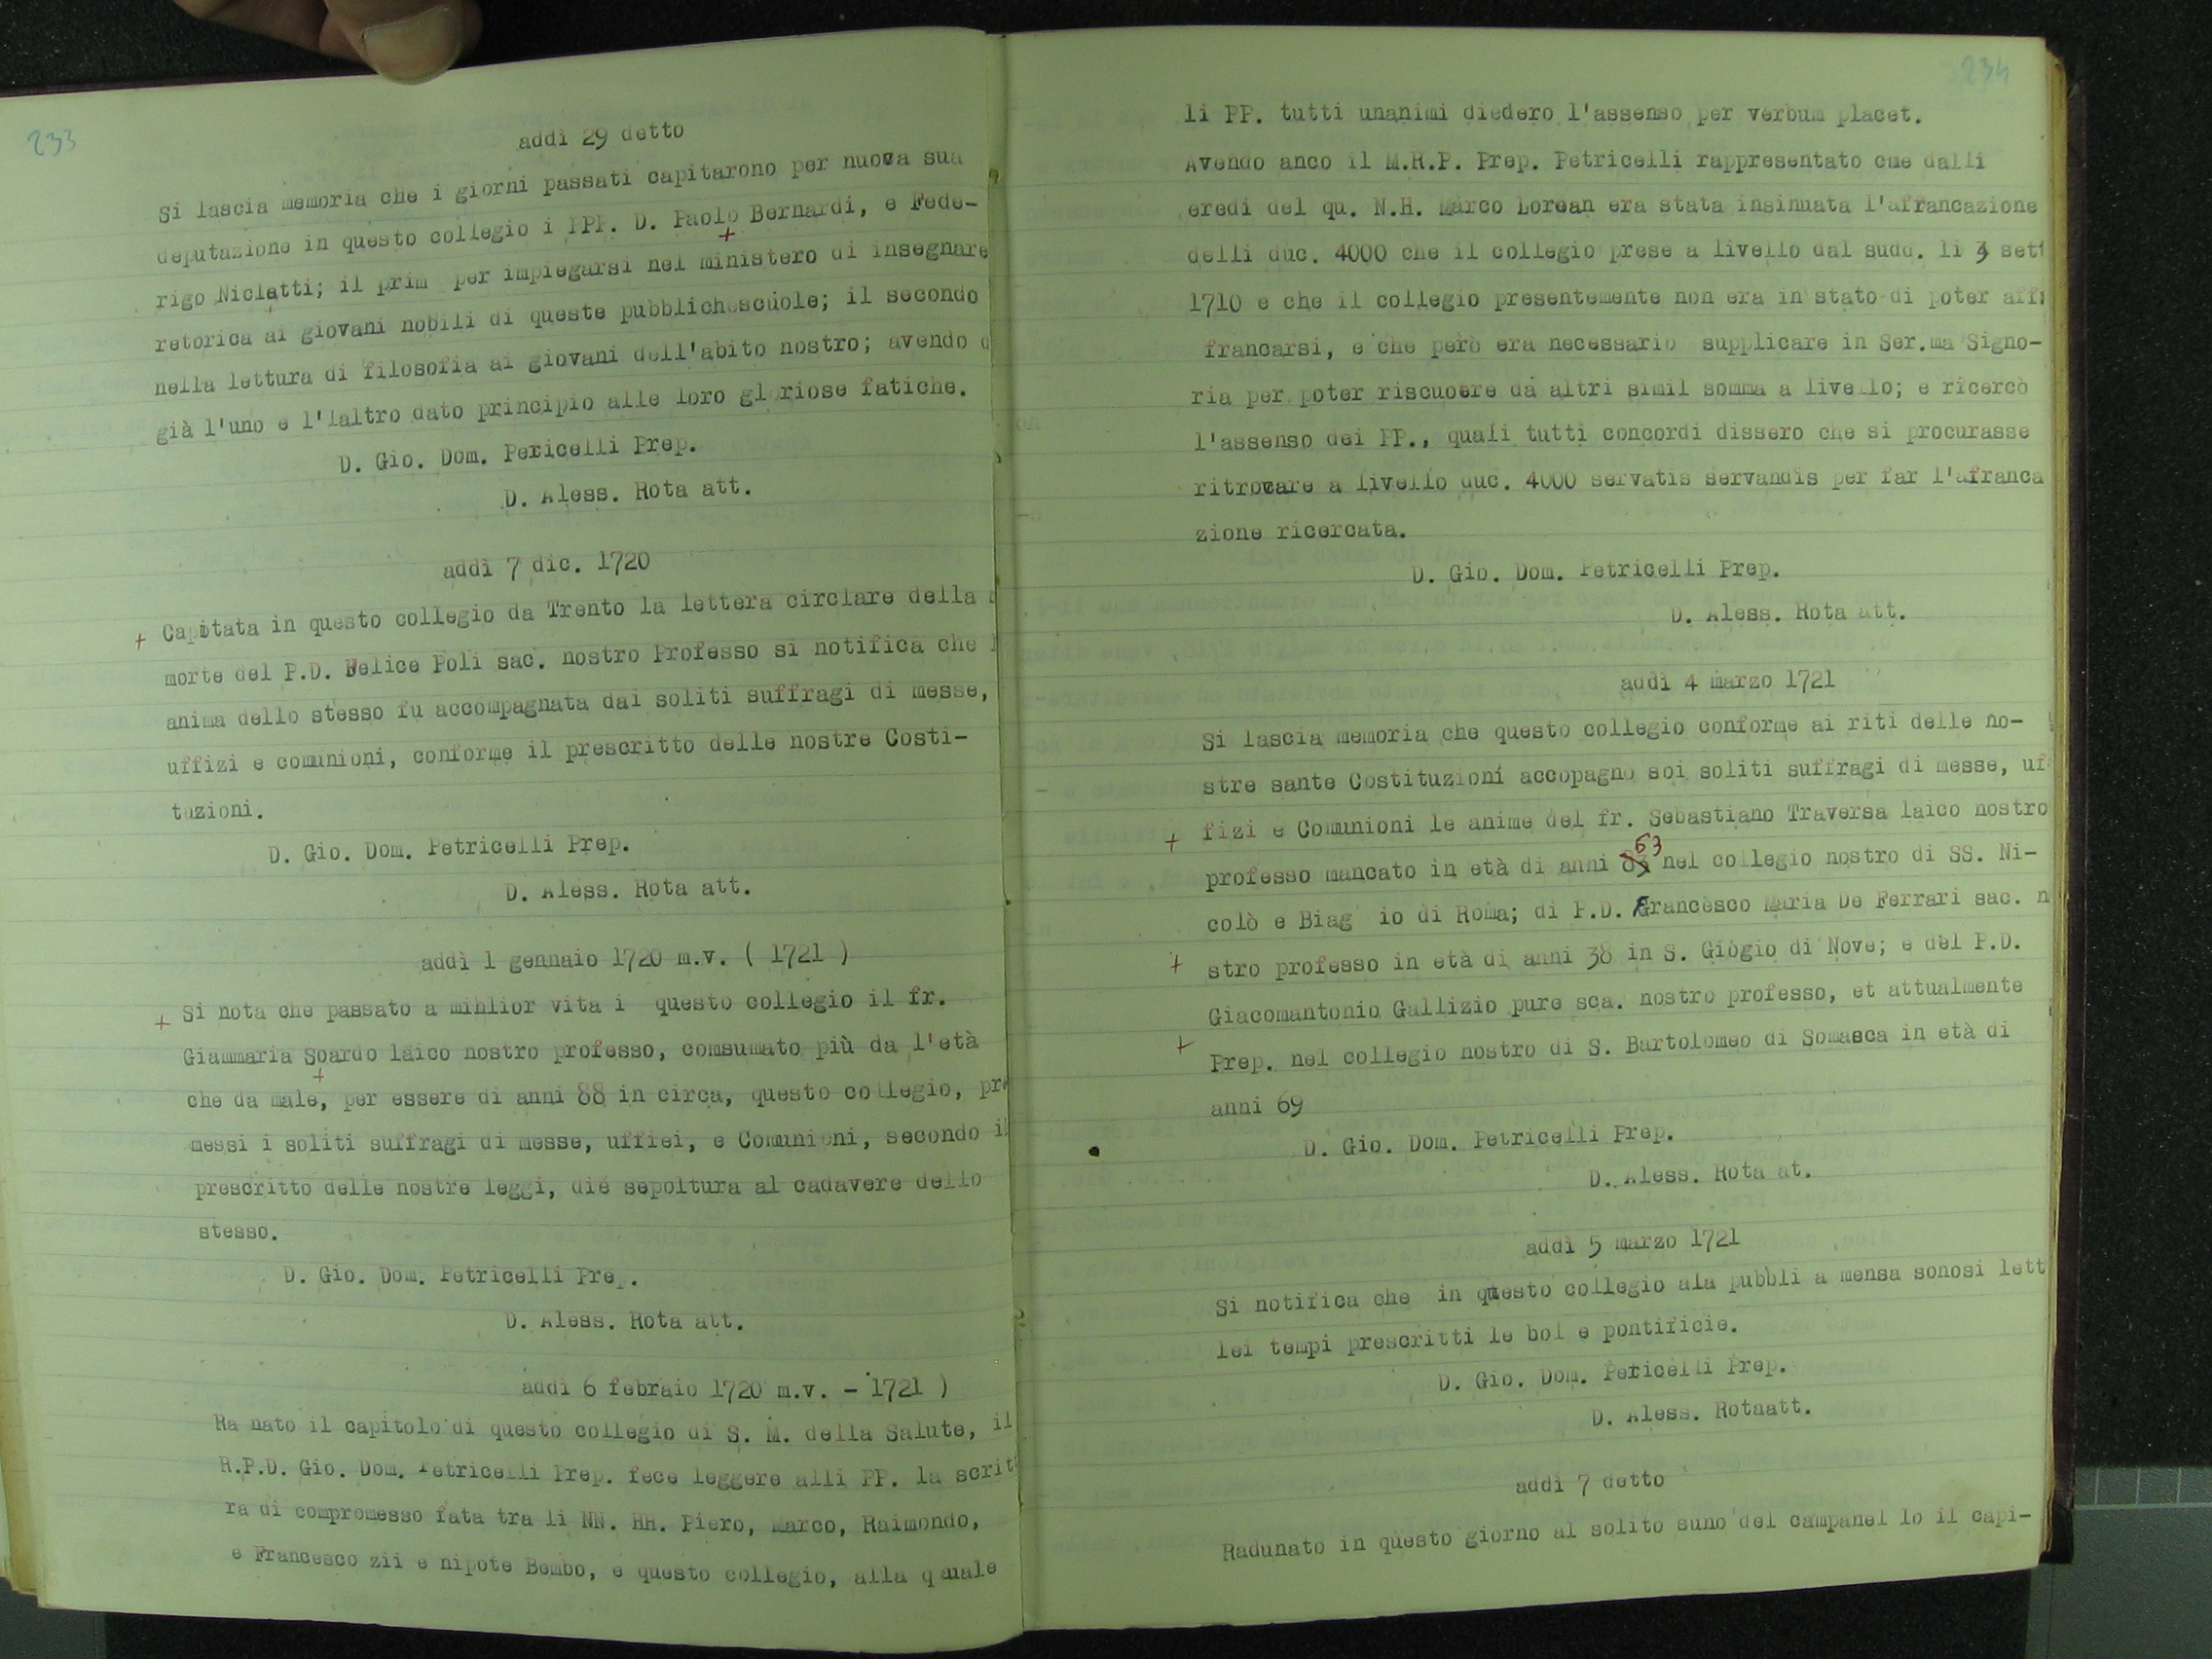 233
addì 29 detto
Si lascia memoria che i giorni passati capitarono per nuova sua
deputazione in questo collegio i PP. D. Paolo Bernardi, e Fede-
rigo Nicletti; il prim per impiegarsi nel ministero di insegnare
retorica ai giovani nobili di queste pubbliche scuole; il secondo
nella lettura di filosofia ai giovani dell'abito nostro; avendo
già l'uno e l'laltro dato principio alle loro gl riose fatiche.
D. Gio. Dom. Pericelli Prep.
D. Aless. Rota att.
addì 7 dic. 1720
+ Capitata in questo collegio da Trento la lettera circlare della
morte del P.D. Felice Poli sac. nostro Professo si notifica che
anima dello stesso fu accompagnata dai soliti suffragi di messe,
uffizi e comunioni, conforme il prescritto delle nostre Costi-
tuzioni.
D. Gio. Dom. Petricelli Prep.
D. Aless. Rota att.
addì 1 gennaio 1720 m.v. ( 1721 )
+ Si nota che passato a mihlior vita i questo collegio il fr.
Giammaria Soardo laico nostro professo, comsumato più da l'età
che da male, per essere di anni 88 in circa, questo collegio, pre
messi i soliti suffragi di messe, uffiei, e Comunioni, secondo il
prescritto delle nostre leggi, dié sepoltura al cadavere dello
stesso.
D. Gio. Dom. Petricelli Prep.
D. Aless. Rota att.
addì 6 febraio 1720 m.v. - 1721 )
Ra nato il capitolo di questo collegio di S. M. della Salute, il
R.P.D. Gio. Dom. Petricelli Prep. fece leggere alli PP. la scritt
ra di compromesso fata tra li NN. HH. Piero, Marco, Raimondo,
e Francesco zii e nipote Bembo, e questo collegio, alla quale
234
li PP. tutti unanimi diedero l'assenso per verbum placet.
Avendo anco il M.R.P. Prep. Petricelli rappresentato che dalli
eredi del qu. N.H. Marco Lorean era stata insinuata l'afrancazione
delli duc. 4000 che il collegio prese a livello dal sudd. li 3 sett
1710 e che il collegio presentemente non era in stato di poter aff
francarsi, e che però era necessario supplicare in Ser.ma Signo-
ria per poter riscuotere da altri simil somma a livello; e ricercò
l'assenso dei PP., quali tutti concordi dissero che si procurasse
ritrovare a livello duc. 4000 servatis servandis per far l'afranca
zione ricercata.
D. Gio. Dom. Petricelli Prep.
D. Aless. Rota att.
addì 4 marzo 1721
Si lascia memoria che questo collegio conforme ai riti delle no-
stre sante Costituzioni accopagno soi soliti suffragi di messe, uf
+ fizi e Comunioni le anime del fr. Sebastiano Traversa laico nostro
professo mancato in età di anni 63 nel collegio nostro di SS. Ni-
colò e Biag io di Roma; di P.D. Francesco Maria De Ferrari sac. n
+ stro professo in età di anni 38 in S. Giogio di Nove; e del P.D.
Giacomantonio Gallizio pure sca. nostro professo, et attualmente
+ Prep. nel collegio nostro di S. Bartolomeo di Somasca in età di
anni 69
D. Gio. Dom. Petricelli Prep.
D. Aless. Rota at.
addì 5 marzo 1721
Si notifica che in questo collegio ala pubbli a mensa sonosi lett
lei tempi prescritti le bol e pontificie.
D. Gio. Dom. Pericelli Prep.
D. Aless. Rotaatt.
addì 7 detto
Radunato in questo giorno al solito suno del campanel lo il capi-